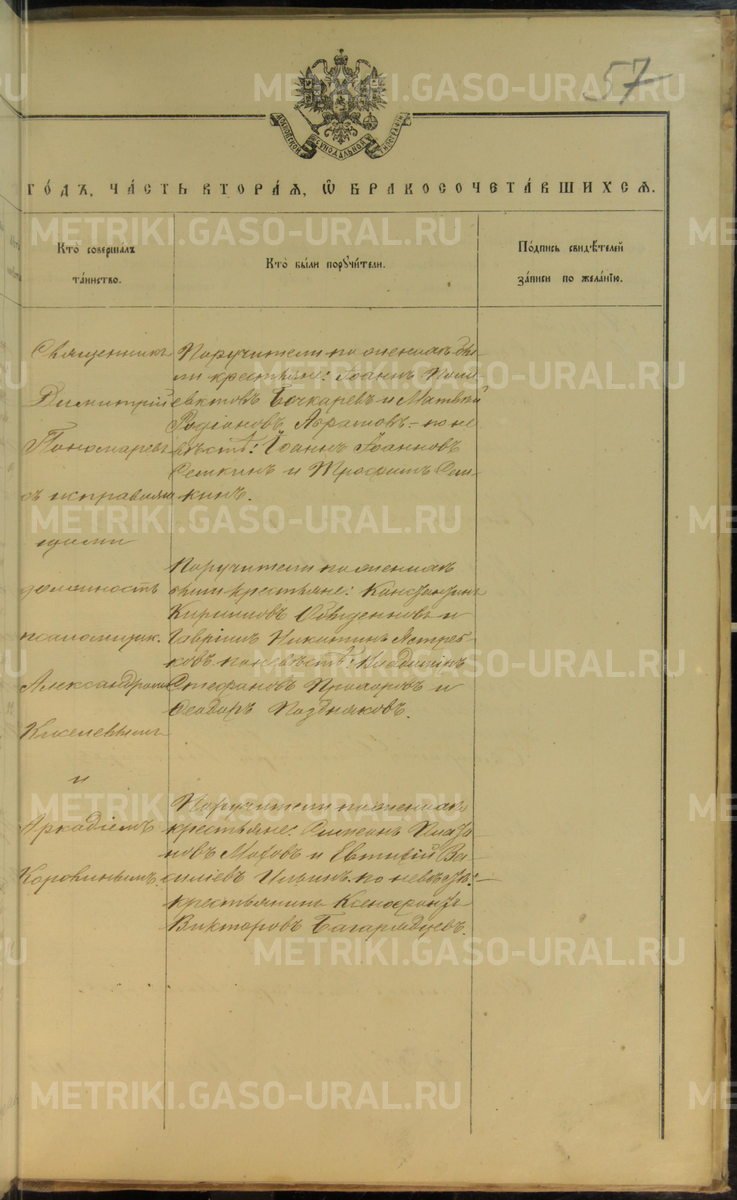 57
МОСКОВСКОЙ СѴНОДАЛЬНОЙ ТИПОГРАФІИ
ГО́ДЪ, ЧА́СТЬ ВТОРА́Я, Ѡ҆ БРАКОСОЧЕТА́ВШИХСЯ.
Кто̀ соверша́лъ
та́инство.
Кто̀ бы́ли порꙋчи́тели.
По́дпись свидѣ́телей
за́писи по жела́нїю.
Священникъ
Димитрий
Пономаревъ
съ исправляю
щими
должность
псаломщик.
Александромъ
Киселевымъ
и
Аркадіемъ
Коровинымъ.
Поручители по жениихъ бы-
ли крестьяне: Іоаннъ Поли-
евктовъ Бочкаревъ и Матвѣй
Родіоновъ Абрамовъ - по не
вѣстѣ: Іоаннъ Іоанновъ
Семкинъ и Трофимъ Сем-
кинъ.
Поручители по жениихъ
были крестьяне: Константинъ
Кириловъ и
Гавріилъ Никитинъ Ястреб-
ковъ по невѣстѣ:
Стефановъ Прохоровъ и
Ѳеодоръ Поздняковъ.
Поручители по жениихъ
крестьяне: Симеонъ Плато-
новъ Моховъ и Евтихій Ва-
силіевъ Ильинъ. по невѣстѣ:
крестьянинъ Ксенофонтъ
Викторовъ Багарядцевъ.
METRIKI.GASO-URAL.RU